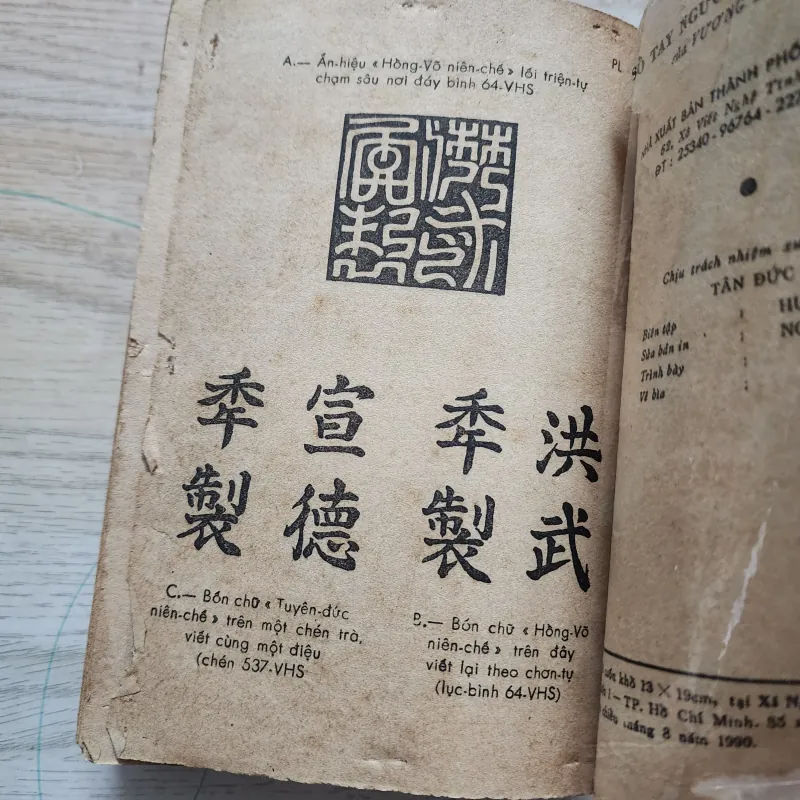 A.— Ấn-hiệu « Hồng-Võ niên-chế » lối triện-tự
chạm sâu nơi đáy bình 64-VHS
洪武
年製
宣德
年製
C.— Bốn chữ « Tuyên-đức
niên-chế » trên một chén trà,
viết cùng một điệu
(chén 537-VHS
B.— Bón chữ « Hồng-Võ
niên-chế » trên đây
viết lại theo chơn-tự
(lục-bình 64-VHS)
PL
SỔ TAY NGƯỜ
của VƯƠNG
NHÀ XUẤT BẢN THÀNH PHỐ
62, Xô Viết Nghệ Tĩnh
ĐT : 25340 - 96764 - 222
Chịu trách nhiệm xu
TẤN ĐỨC
Biên tập :
Sửa bản in :
Trình bày :
Vẽ bìa :
HU
NG
khổ 13 × 19cm, tại Xí N
1 – TP. Hồ Chí Minh. Số
tháng 8 năm 1990.